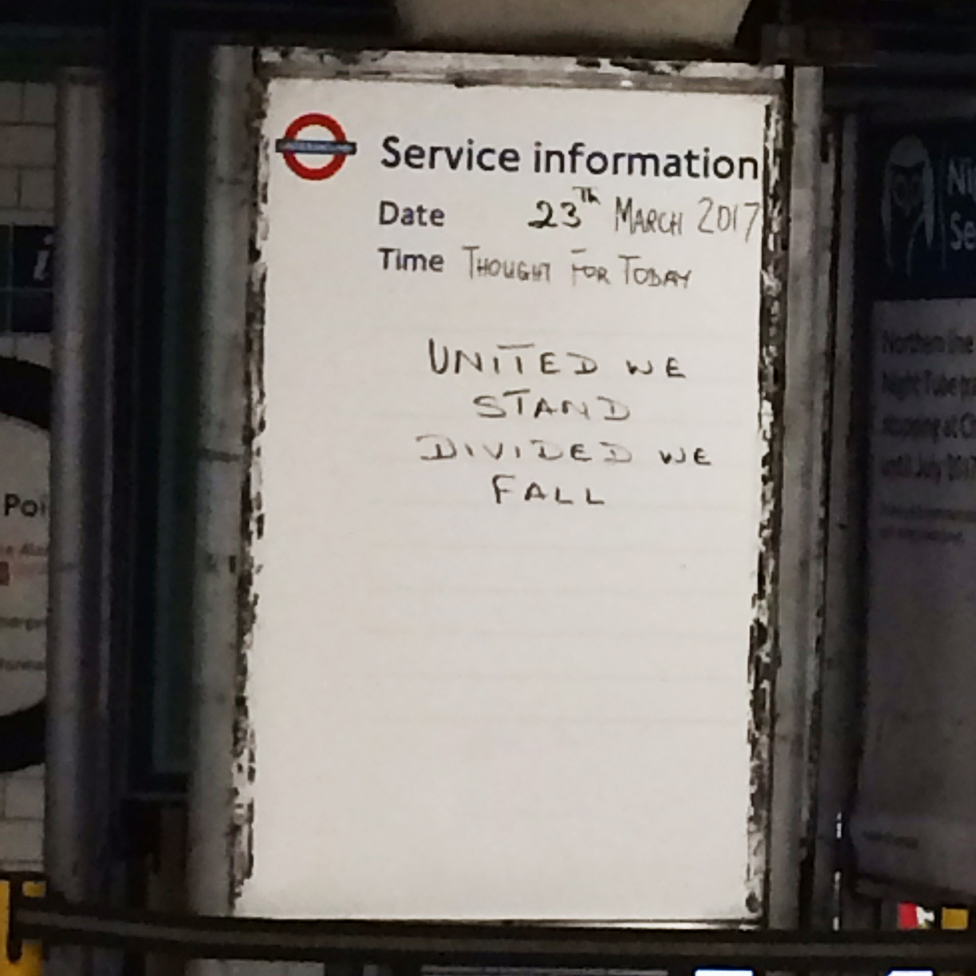 UNDERGROUND
Service information
Date 23Th MARCH 2017
Time THOUGHT FOR TODAY
UNITED WE
STAND
DIVIDED WE
FALL
i
Poi
Ni
Se
Northern line
Night Tube
stopping at
until July 2017